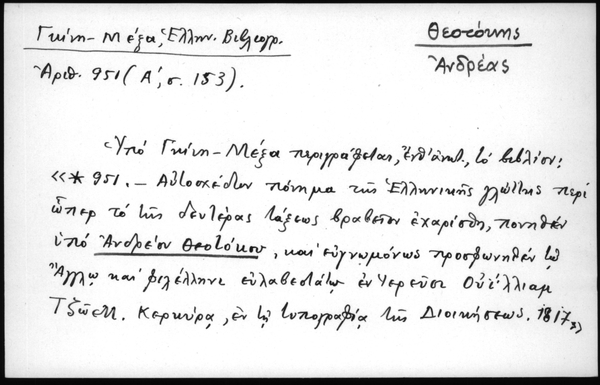 Γκίνη - Μέξα, Ἑλλην. Βιβλιογρ.
Ἀριθ. 951 (Α΄, σ. 153).
Θεοτόκης
Ἀνδρέας
Ὑπὸ Γκίνη - Μέξα περιγράφεται, ἔνθ' ἀνωτ., τὸ βιβλίον:
«* 951. - Αὐτοσχέδιον πόνημα τῆς Ἑλληνικῆς γλώττης περὶ
ὧπερ τὸ τῆς δευτέρας τάξεως βραβεῖον ἐχαρίσθη, πονηθὲν
ὑπὸ Ἀνδρέου Θεοτόκου, καὶ εὐγνωμόνως προσφωνηθὲν τῷ
Ἄγγλῳ καὶ φιλέλληνι εὐλαβεστάτῳ ἐν Ἱερεῦσι Οὐίλλιαμ
Τζῶεττ. Κερκύρᾳ, ἐν τῇ τυπογραφίᾳ τῆς Διοικήσεως. 1817»